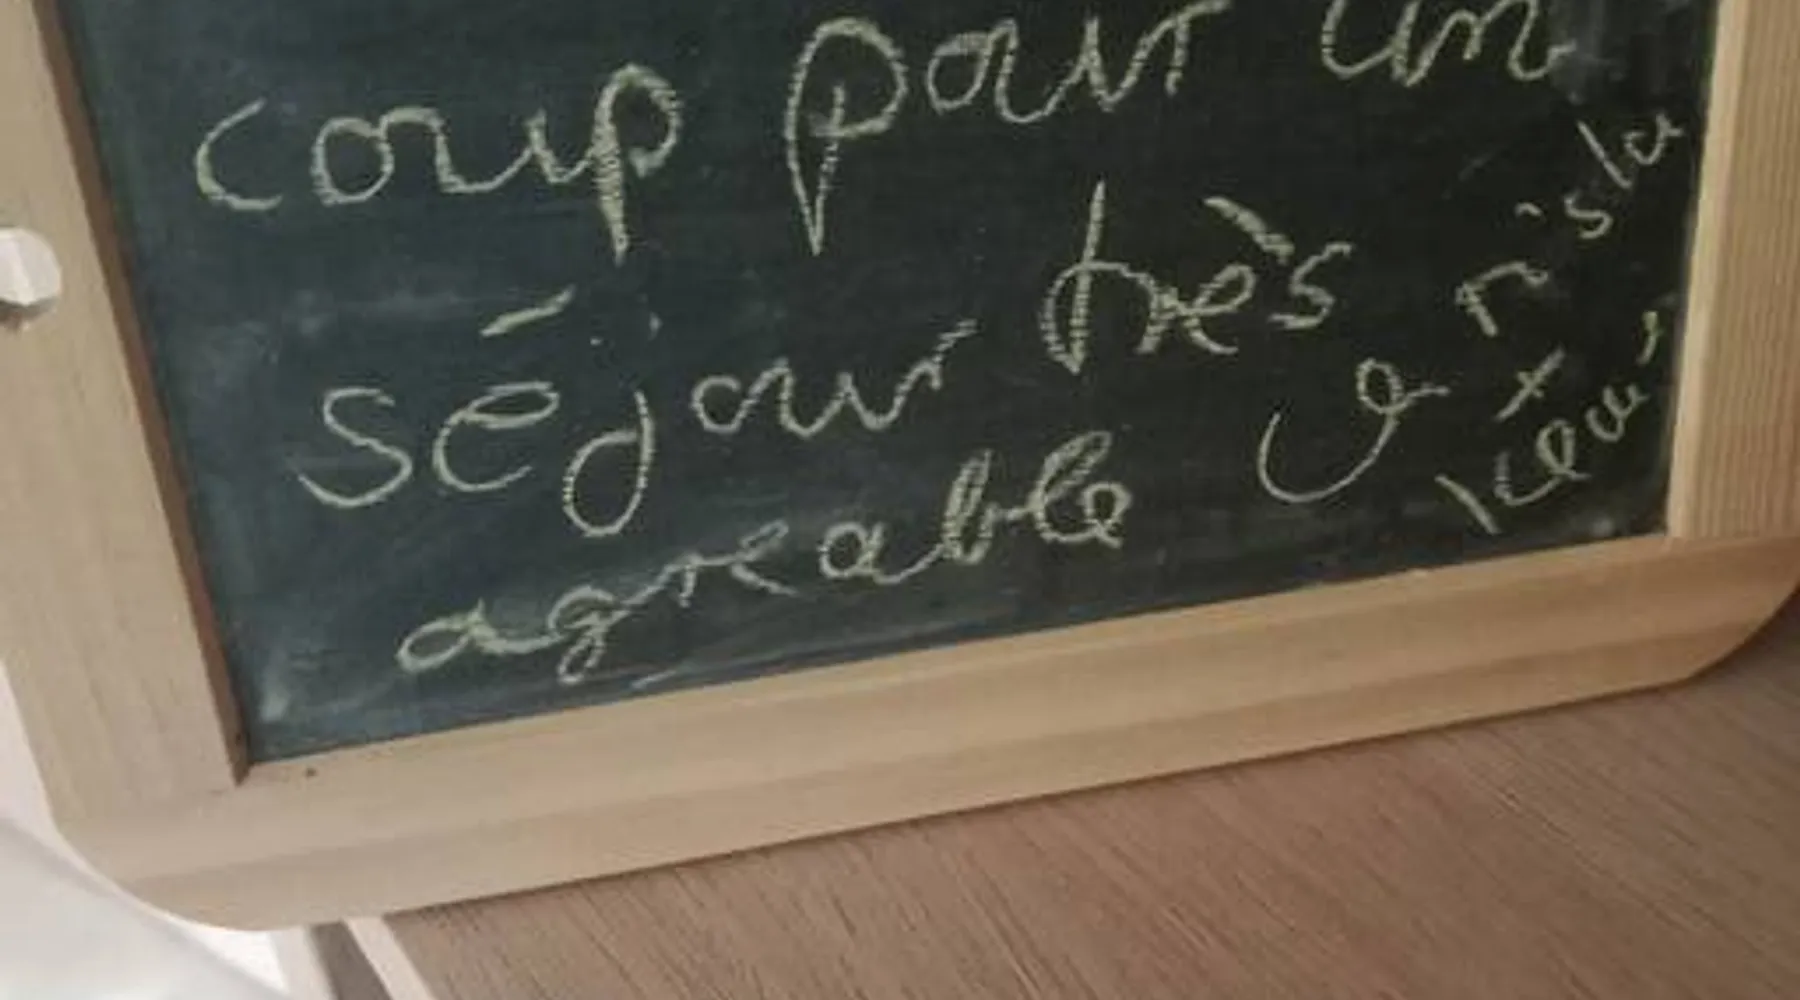 coup pour un
séjour très
agreable